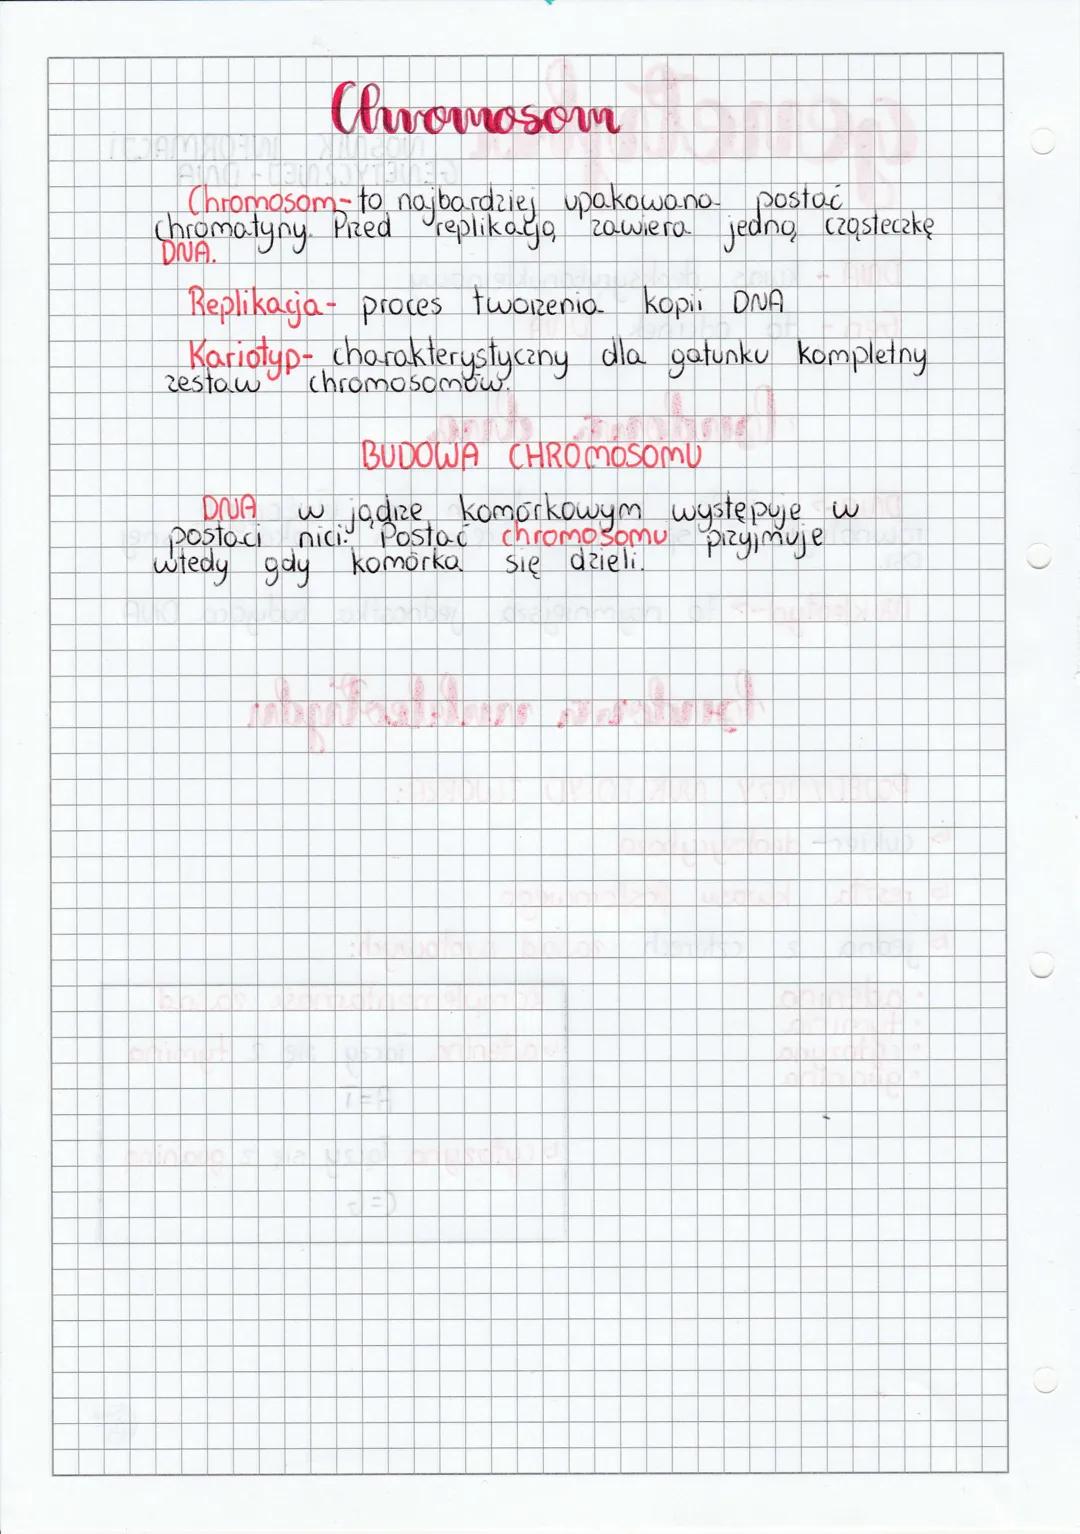 Chromosom
Chromosom- to najbardziej upakowana postać
chromatyny. Przed replikacją zawiera jedną cząsteczkę
DNA.
Replikacja- proces tworzenia kopii DNA
Kariotyp- charakterystyczny dla gatunku kompletny
zestaw chromosomów.
BUDOWA CHROMOSOMU
DNA w jądrze komórkowym występuje w
postaci nici. Postać chromosomu przyjmuje
wtedy gdy komórka się dzieli.